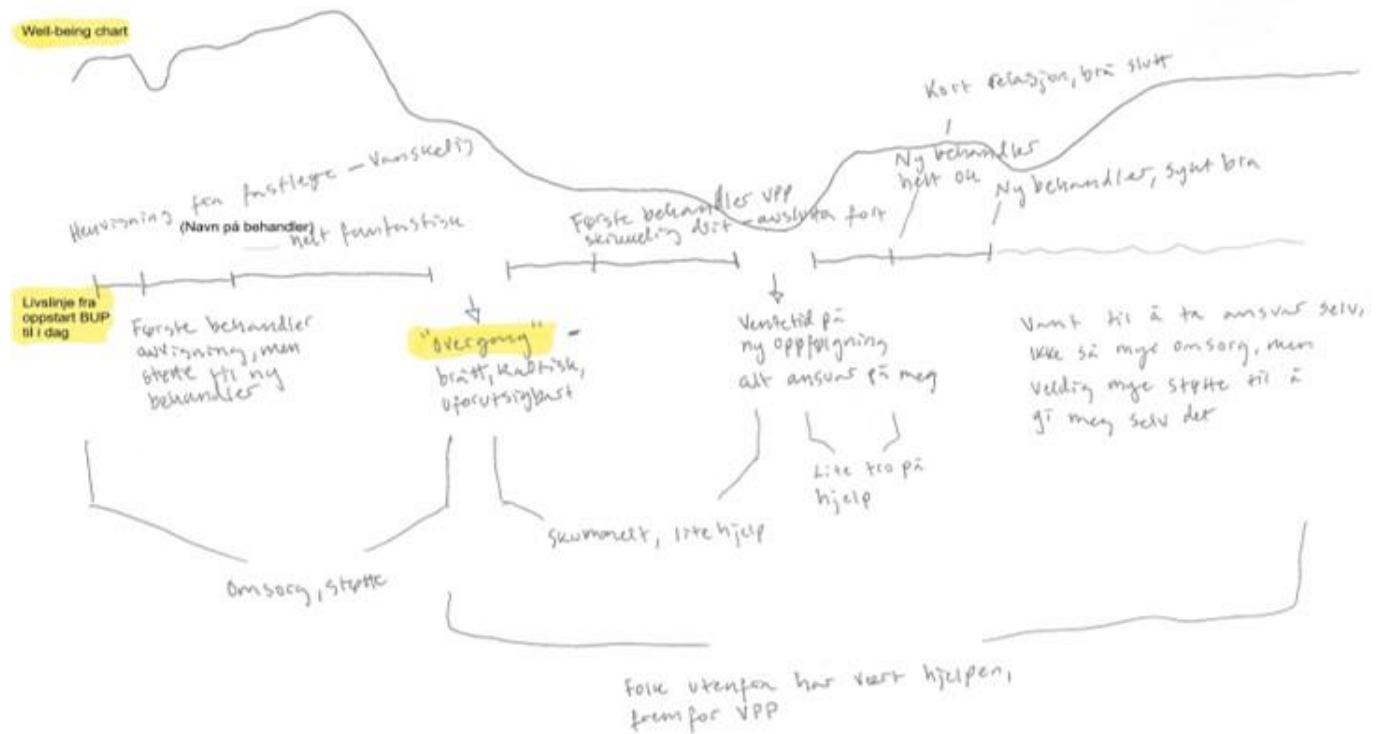 Well-being chart
Kort relasjon, brå slutt
Ny behandler
helt ok
Ny behandler, sykt bra
Henvisning fra fastlege - Vanskelig
(Navn på behandler)
helt fantastisk
Første behandler VPP
skikkelig drit - avslutta fort
Livslinje fra
oppstart BUP
til i dag
Første behandler
avvisning, men
støtte til ny
behandler
"overgang" -
brått, kaotisk,
uforutsigbart
Ventetid på
ny oppfølgning
alt ansvar på meg
Vant til å ta ansvar selv,
ikke så mye omsorg, men
veldig mye støtte til å
gi meg selv det
Lite tro på
hjelp
Skummelt, lite hjelp
Omsorg, støtte
Folk utenfra har vært hjelpen,
fremfor VPP